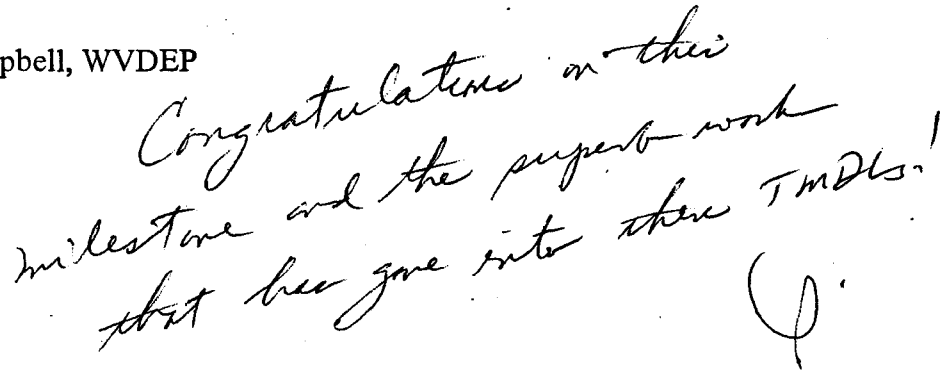 pbell, WVDEP
Congratulations on this
milestone and the superb work
that has gone into these TMDLs!